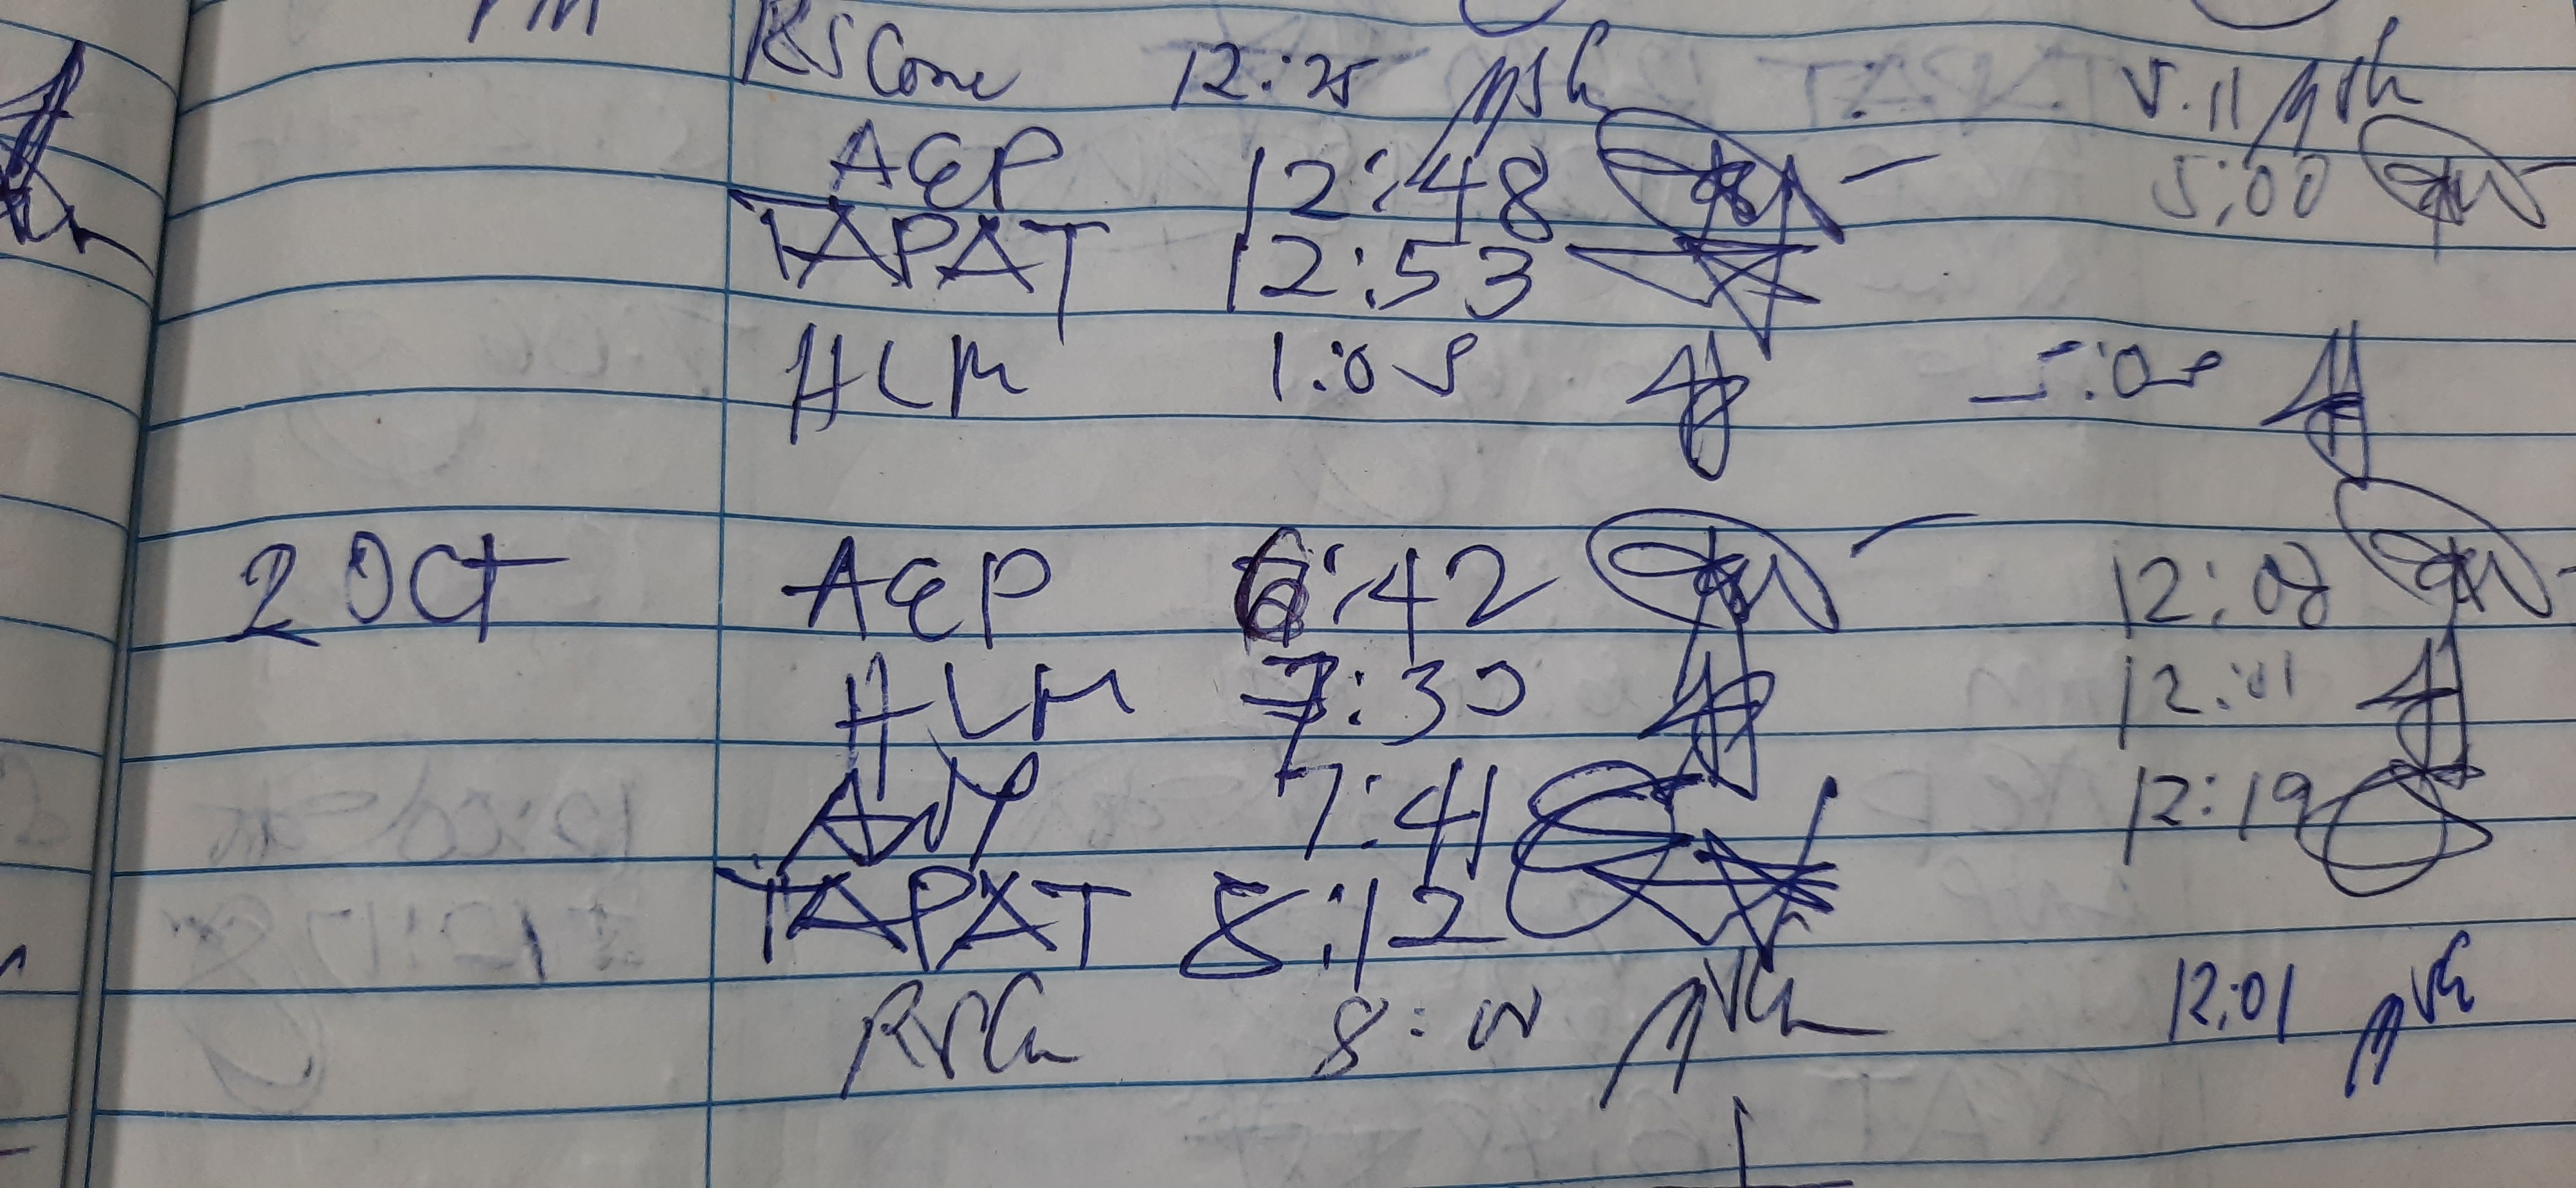 PM
RSCone 12:25 5.11
AEP 12:48 5:00
TAPAT 12:53
HLM 1:05 5:05
2 OCT AEP 6:42 12:08
HLM 7:30 12:01
7:41 12:19
TAPAT 8:12
8:00 12:01